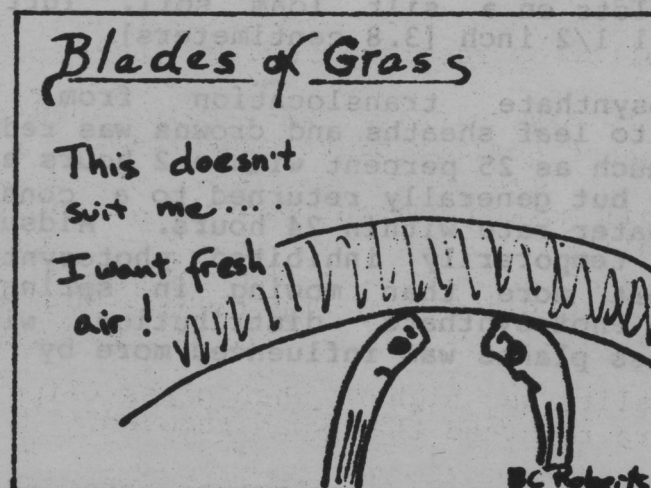 Blades of Grass
This doesn't
suit me
I want fresh
air!
BC Roberts